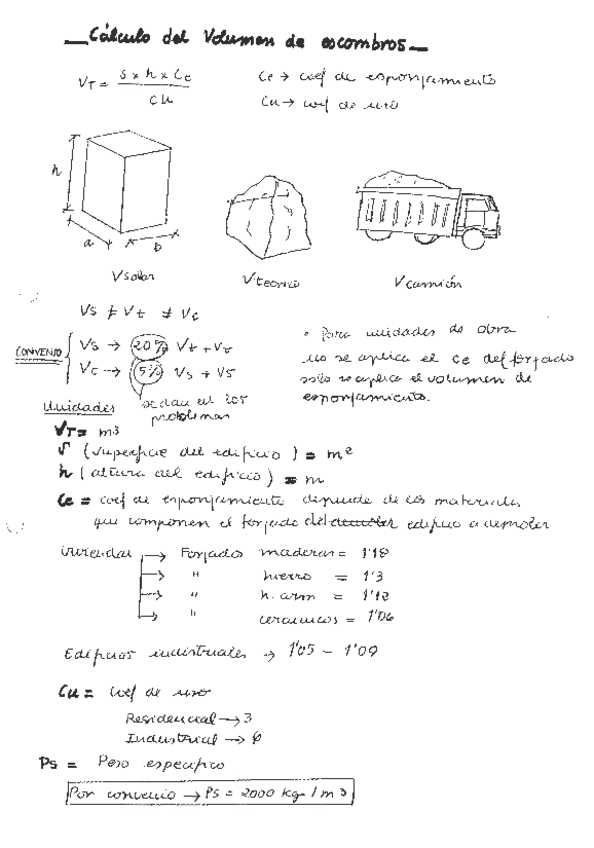 Cálculo del Volumen de escombros
VT = S x h x Ce / Cu
Ce → coef de esponjamiento
Cu → coef de uso
h
a
b
Vsolar
Vtecnico
Vcamión
Vs ≠ Vt ≠ Vc
CONVENIO
Vs → 20% Vt + Vt
Vc → 5% Vs + Vs
se dan en los
problemas
• Para unidades de obra
no se aplica el Ce del forjado
solo se aplica el volumen de
esponjamiento.
Unidades
VT = m3
S (superficie del edificio) = m2
h (altura del edificio) = m
Ce = coef de esponjamiento depende de los materiales
que componen el forjado del edificio a demoler
viviendas → Forjados maderas = 1'18
→ " hierro = 1'3
→ " h. arm = 1'12
→ " ceramicos = 1'06
Edificios industriales → 1'05 - 1'09
Cu = coef de uso
Residencial → 3
Industrial →
Ps = Peso especifico
Por convenio → Ps = 2000 kg / m3